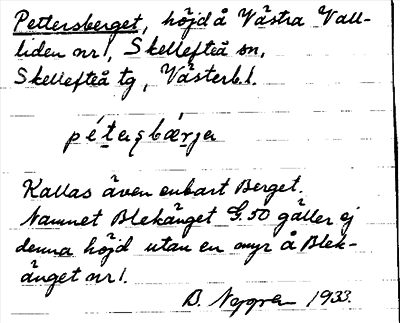 Pettersberget, höjd å Västra Vall-
liden nr 1, Skellefteå sn,
Skellefteå tg, Västerb. l.
pétaʂbǽrjə
Kallas även enbart Berget.
Namnet Blekänget G.50 gäller ej
denna höjd utan en myr å Blek-
änget nr 1.
B. Nygren 1933.